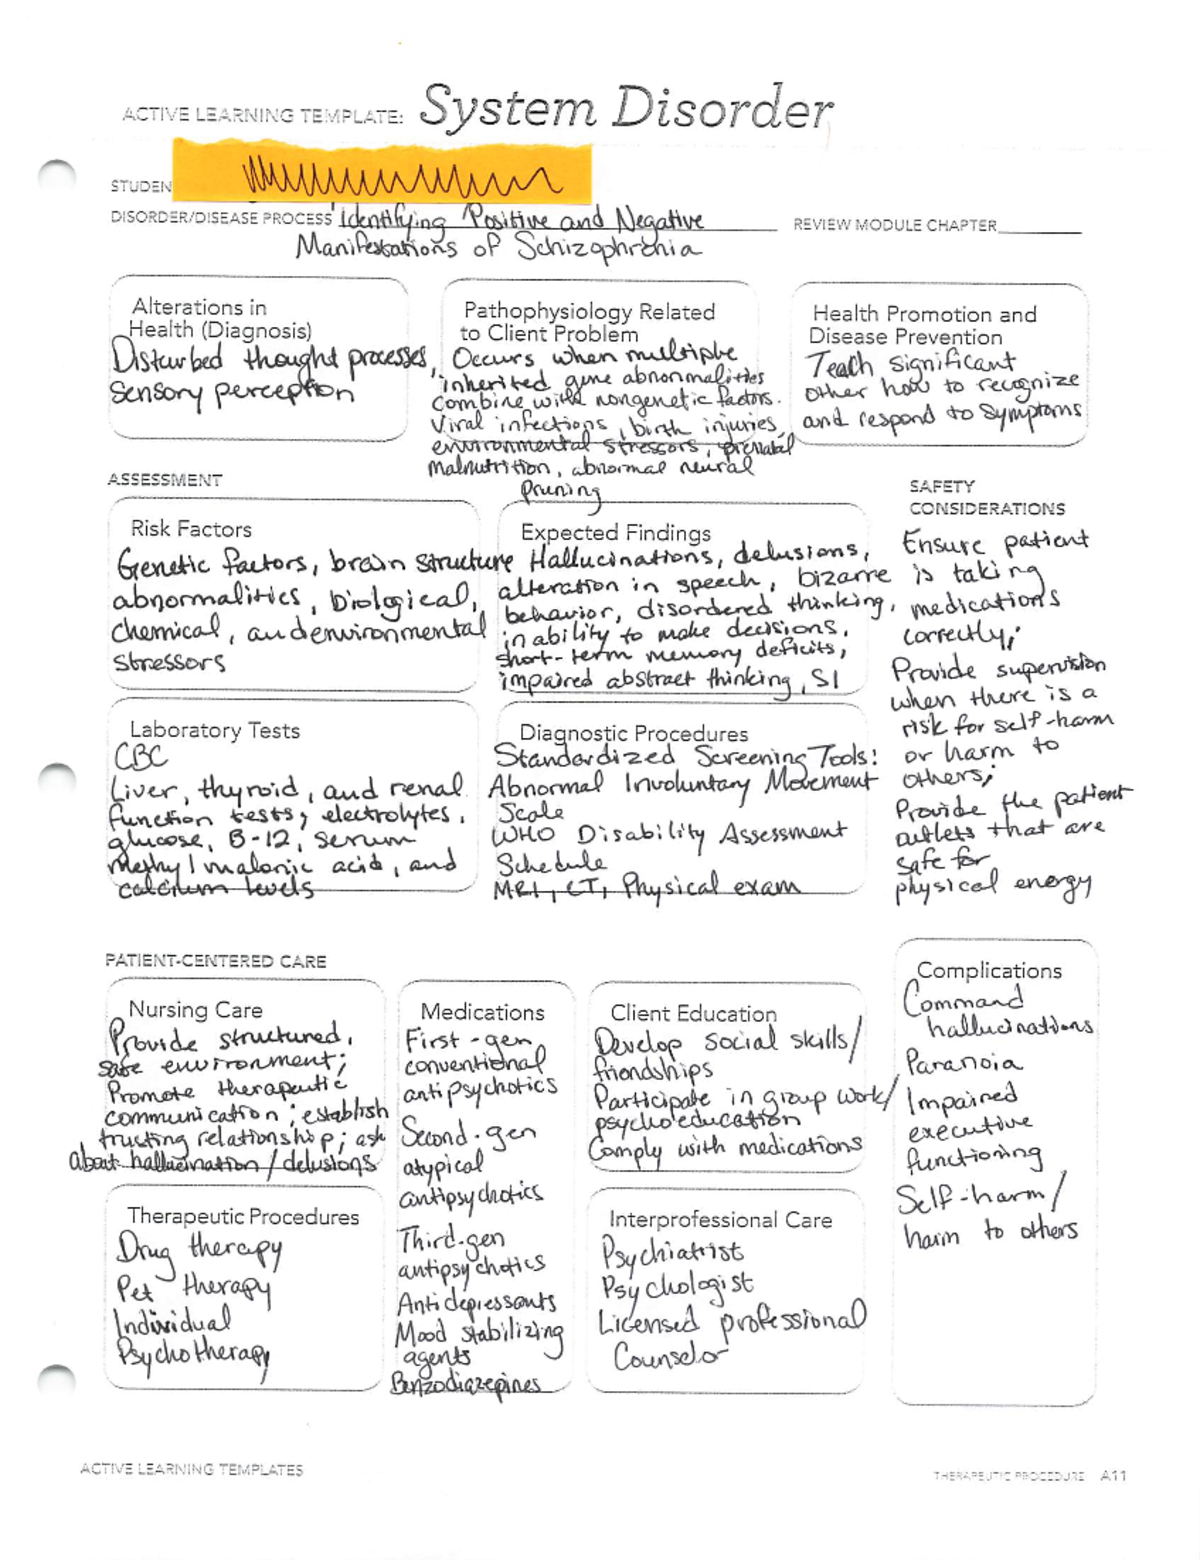 ACTIVE LEARNING TEMPLATE: System Disorder
STUDEN
DISORDER/DISEASE PROCESS Identifying Positive and Negative
Manifestations of Schizophrenia
REVIEW MODULE CHAPTER
Alterations in
Health (Diagnosis)
Disturbed thought processes,
sensory perception
Pathophysiology Related
to Client Problem
Occurs when multiple
inherited gene abnormalities
combine with nongenetic factors.
Viral infections, birth injuries,
environmental stressors, prenatal
malnutrition, abnormal neural
pruning
Health Promotion and
Disease Prevention
Teach significant
other how to recognize
and respond to symptoms
ASSESSMENT
Risk Factors
Genetic factors, brain structure
abnormalities, biological,
chemical, and environmental
stressors
Expected Findings
Hallucinations, delusions,
alteration in speech, bizarre
behavior, disordered thinking,
inability to make decisions,
short-term memory deficits,
impaired abstract thinking, SI
SAFETY
CONSIDERATIONS
Ensure patient
is taking
medications
correctly;
Provide supervision
when there is a
risk for self-harm
or harm to
others;
Provide the patient
outlets that are
safe for
physical energy
Laboratory Tests
CBC
Liver, thyroid, and renal
function tests, electrolytes,
glucose, B-12, serum
methylmalonic acid, and
calcium levels
Diagnostic Procedures
Standardized Screening Tools:
Abnormal Involuntary Movement
Scale
WHO Disability Assessment
Schedule
MRI, CT, Physical exam
PATIENT-CENTERED CARE
Nursing Care
Provide structured,
safe environment;
Promote therapeutic
communication; establish
trusting relationship; ask
about hallucination/delusions
Medications
First-gen
conventional
antipsychotics
Second-gen
atypical
antipsychotics
Third-gen
antipsychotics
Antidepressants
Mood stabilizing
agents
Benzodiazepines
Client Education
Develop social skills/
friendships
Participate in group work/
psychoeducation
Comply with medications
Complications
Command
hallucinations
Paranoia
Impaired
executive
functioning
Self-harm/
harm to others
Therapeutic Procedures
Drug therapy
Pet therapy
Individual
Psychotherapy
Interprofessional Care
Psychiatrist
Psychologist
Licensed professional
Counselor
ACTIVE LEARNING TEMPLATES
THERAPEUTIC PROCEDURE A11